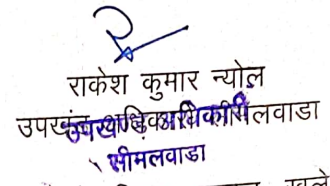 राकेश कुमार न्योल
उपखंड अधिकारी सीमलवाडा
उपखण्ड अधिकारी
सीमलवाडा